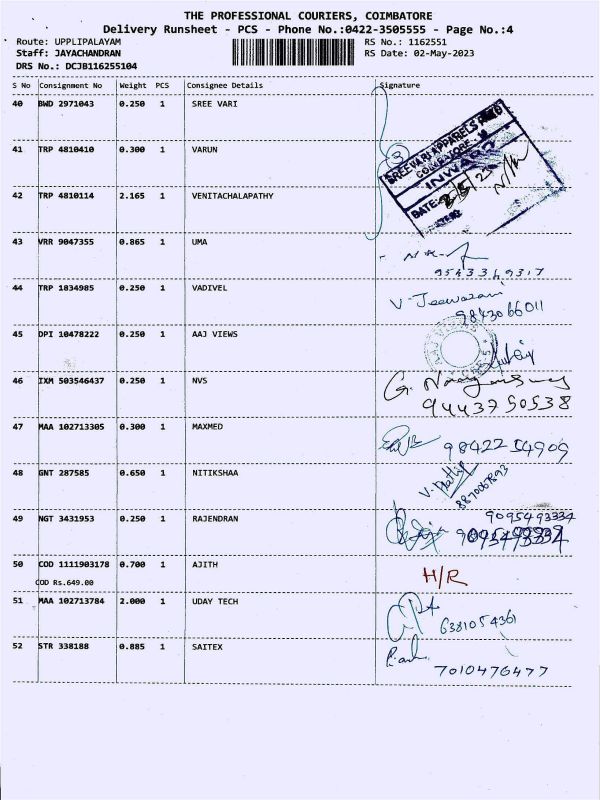 THE PROFESSIONAL COURIERS, COIMBATORE
Delivery Runsheet - PCS - Phone No.:0422-3505555 - Page No.:4
Route: UPPLIPALAYAM RS No.: 1162551
Staff: JAYACHANDRAN RS Date: 02-May-2023
DRS No.: DCJB116255104
S No Consignment No Weight PCS Consignee Details Signature
40 BWD 2971043 0.250 1 SREE VARI
3
SREE VARI APPARELS
COIMBATORE
INWARD
DATE:
41 TRP 4810410 0.300 1 VARUN
42 TRP 4810114 2.165 1 VENITACHALAPATHY
43 VRR 9047355 0.865 1 UMA
9543349317
44 TRP 1834985 0.250 1 VADIVEL
9843066011
45 DPI 10478222 0.250 1 AAJ VIEWS
46 IXM 503546437 0.250 1 NVS
9443750538
47 MAA 102713305 0.300 1 MAXMED 9842254909
48 GNT 287585 0.650 1 NITIKSHAA
49 NGT 3431953 0.250 1 RAJENDRAN 9095493334
9095493334
50 COD 1111903178 0.700 1 AJITH H/R
COD Rs.649.00
51 MAA 102713784 2.000 1 UDAY TECH 6381054361
52 STR 338188 0.885 1 SAITEX
7010476477